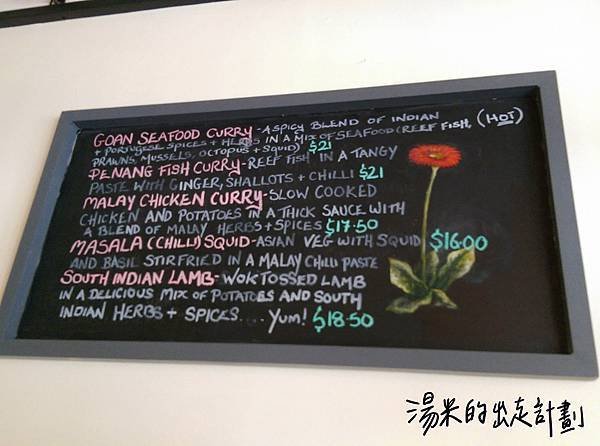 GOAN SEAFOOD CURRY - A SPICY BLEND OF INDIAN
+ PORTUGESE SPICES + HERBS IN A MIX OF SEAFOOD (REEF FISH, (HOT)
PRAWNS, MUSSELS, OCTOPUS + SQUID) $21
PENANG FISH CURRY - REEF FISH IN A TANGY
PASTE WITH GINGER, SHALLOTS + CHILLI $21
MALAY CHICKEN CURRY - SLOW COOKED
CHICKEN AND POTATOES IN A THICK SAUCE WITH
A BLEND OF MALAY HERBS + SPICES $17.50
MASALA (CHILLI) SQUID - ASIAN VEG WITH SQUID $16.00
AND BASIL STIRFRIED IN A MALAY CHILLI PASTE
SOUTH INDIAN LAMB - WOK TOSSED LAMB
IN A DELICIOUS MIX OF POTATOES AND SOUTH
INDIAN HERBS + SPICES.... YUM! $18.50
湯米的出走計劃